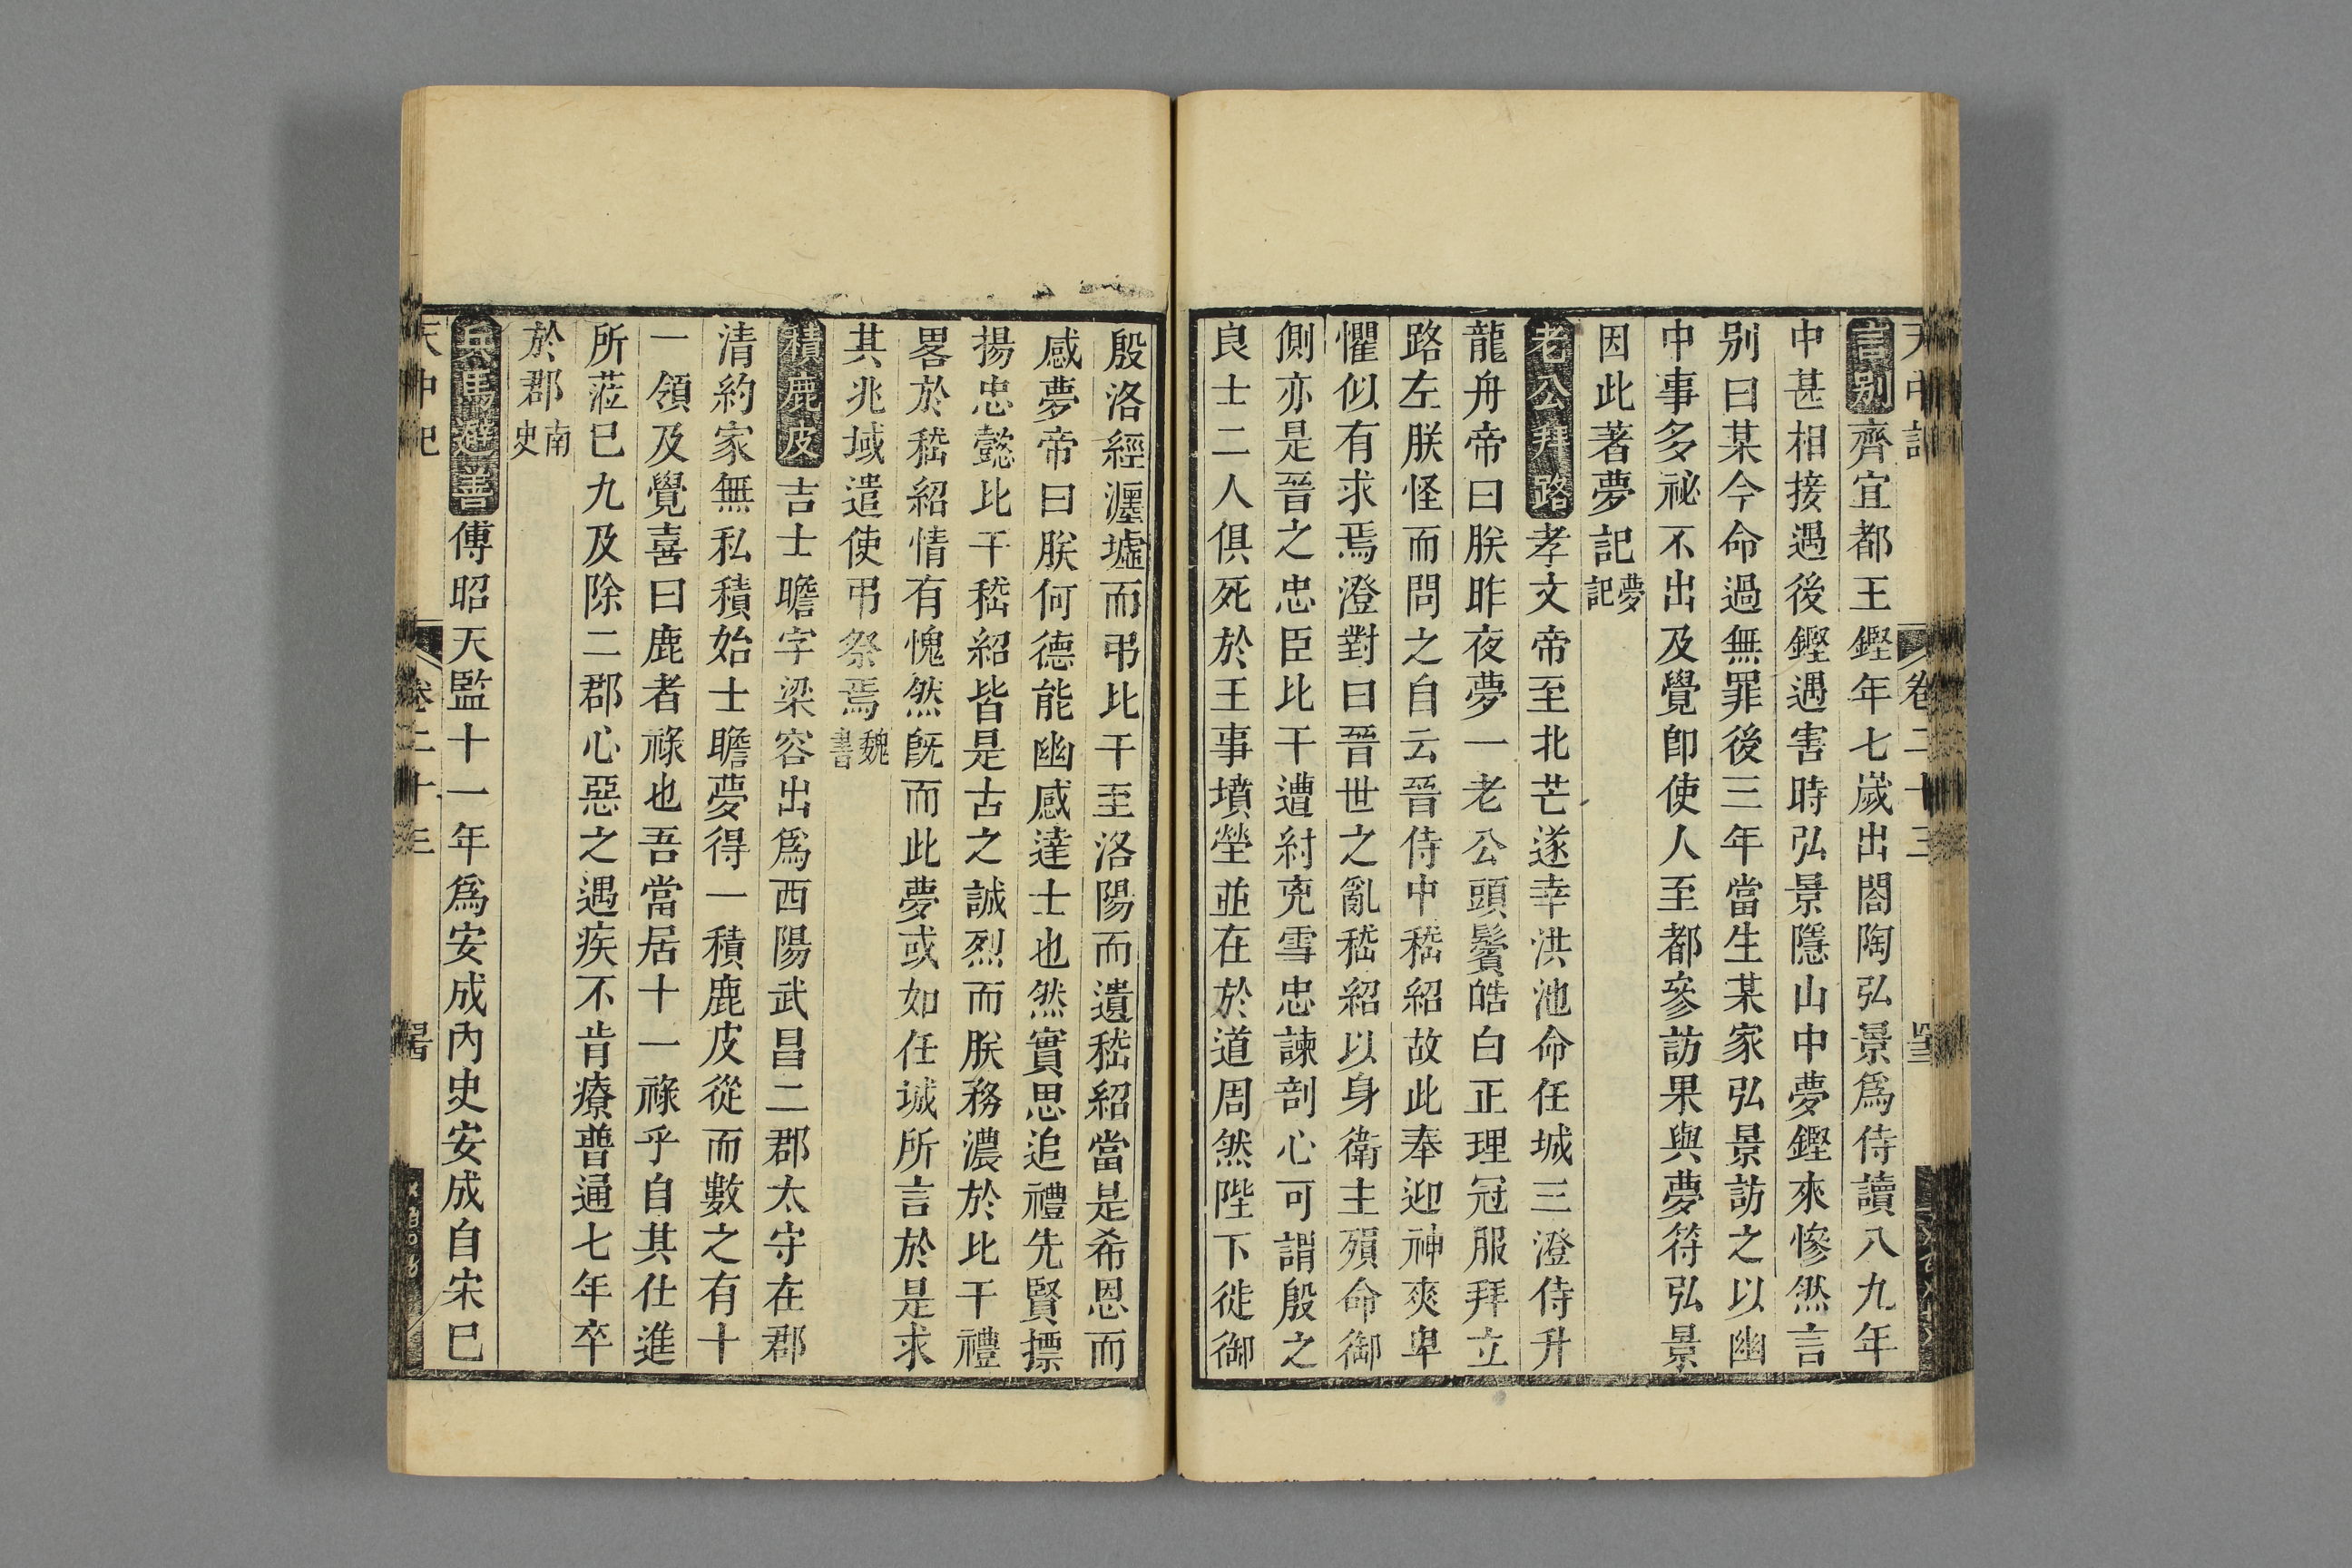 天中記
卷二十三
言別齊宜都王鏗年七歲出閤陶弘景爲侍讀八九年
中甚相接遇後鏗遇害時弘景隱山中夢鏗來慘然言
別曰某今命過無罪後三年當生某家弘景訪之以幽
中事多祕不出及覺卽使人至都參訪果與夢符弘景
因此著夢記夢記
老公拜路孝文帝至北芒遂幸洪池命任城王澄侍升
龍舟帝曰朕昨夜夢一老公頭鬢皓白正理冠服拜立
路左朕怪而問之自云晉侍中嵇紹故此奉迎神爽卑
懼似有求焉澄對曰晉世之亂嵇紹以身衛主殞命御
側亦是晉之忠臣比干遭紂兇雪忠諫剖心可謂殷之
良士二人俱死於王事墳塋並在於道周然陛下徙御
殷洛經瀍墟而弔比干至洛陽而遺嵇紹當是希恩而
感夢帝曰朕何德能幽感達士也然實思追禮先賢摽
揚忠懿比干嵇紹皆是古之誠烈而朕務濃於比干禮
畧於嵇紹情有愧然旣而此夢或如任城所言於是求
其兆域遣使弔祭焉魏書
積鹿皮吉士瞻字梁容出爲西陽武昌二郡太守在郡
清約家無私積始士瞻夢得一積鹿皮從而數之有十
一領及覺喜曰鹿者祿也吾當居十一祿乎自其仕進
所蒞已九及除二郡心惡之遇疾不肯療普通七年卒
於郡南史
兵馬避善傅昭天監十一年爲安成內史安成自宋已
天中記
卷二十三